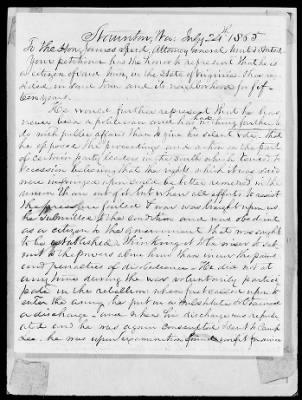 Staunton, Va. July 24th 1865
To the Hon James Speed, Attorney General United States
Your petitioner has the honor to represent that he is
a citizen of said town, in the State of Virginia. Has re-
sided in said town and its neighborhood for fif-
teen years.
He would further represent that he has
never been a politician and has had nothing further to
do with public affairs than to give his silent vote. that
he opposed the proceedings and action on the part
of certain party leaders in the South which tended to
secession believing that the rights which it was said
were infringed upon could be better remedied in the
union than out of it but when all efforts to avert
the pressure failed & war was brought upon us
he submitted to the condition and was obedient
as a citizen to the Government that was sought
to be established thinking it the wiser to sub-
mit to the powers above him than incur the pains
and penalties of disobedience - He did not at
any time during the war voluntarily partici-
pate in the rebellion when first called upon to
enter the army, he put in a substitute & obtained
a discharge - and when his discharge was repudi-
ated and he was again conscripted & sent to Camp
Lee he was upon examination found unfit for service